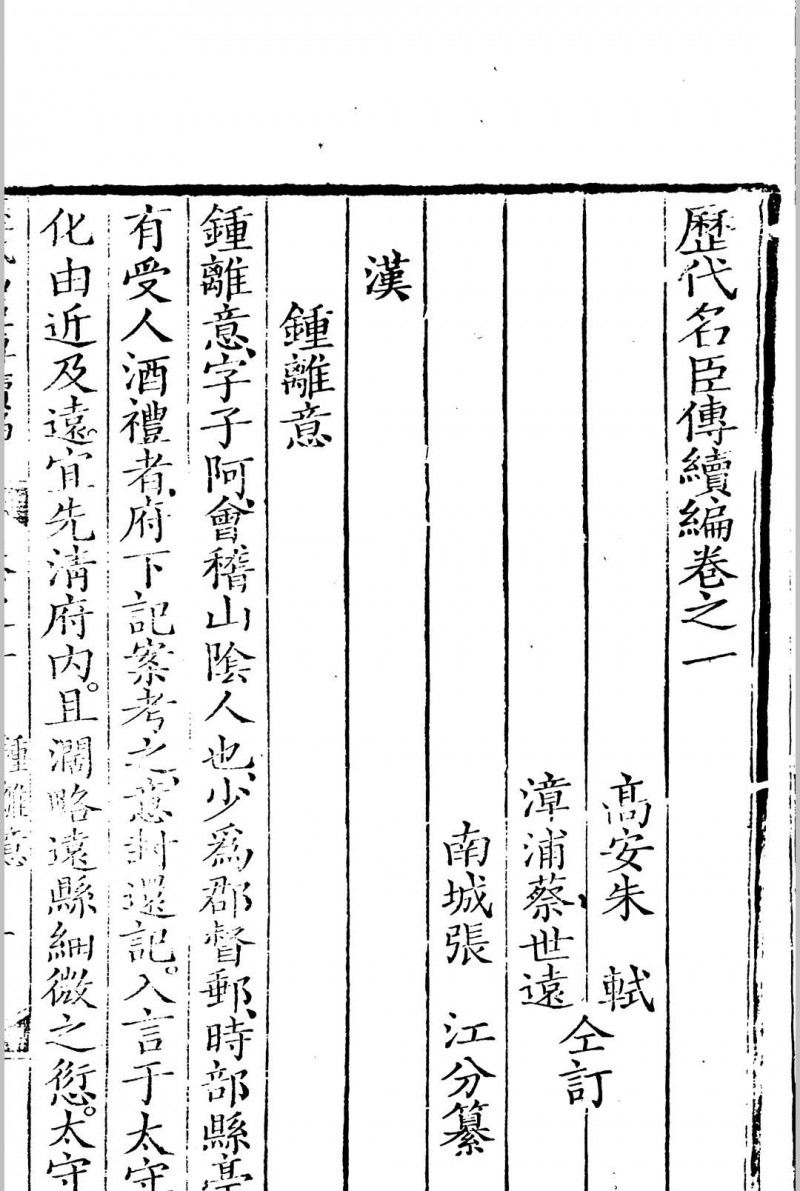 歷代名臣傳續編卷之一
髙安朱 軾
漳浦蔡世遠
仝訂
南城張 江分纂
漢
鍾離意
鍾離意、字子阿、會稽山隂人也、少爲郡督郵、時部縣亭
有受人酒禮者、府下記案考之、意封還記。入言于太守
化由近及遠。宜先淸府內。且濶略遠縣細微之愆。太守
鍾離意